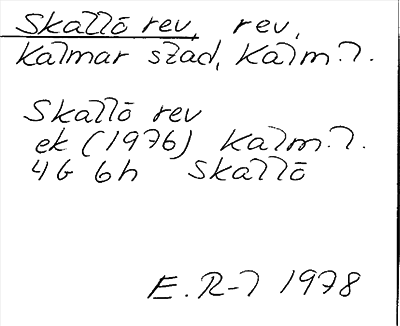 Skallö rev, rev,
Kalmar stad, Kalm.l.
Skallö rev
ek (1976) Kalm.l.
4G 6h Skallö
E. R-l 1978